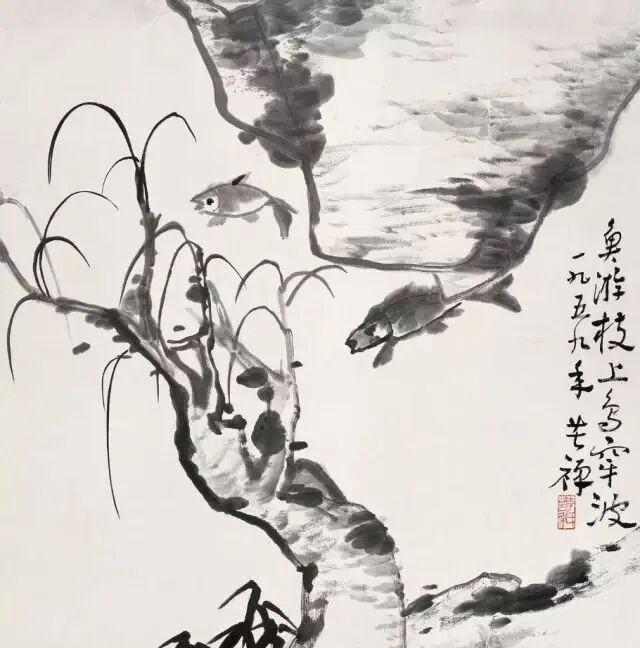 魚游枝上鸟穿波
一九五九年 苦禅